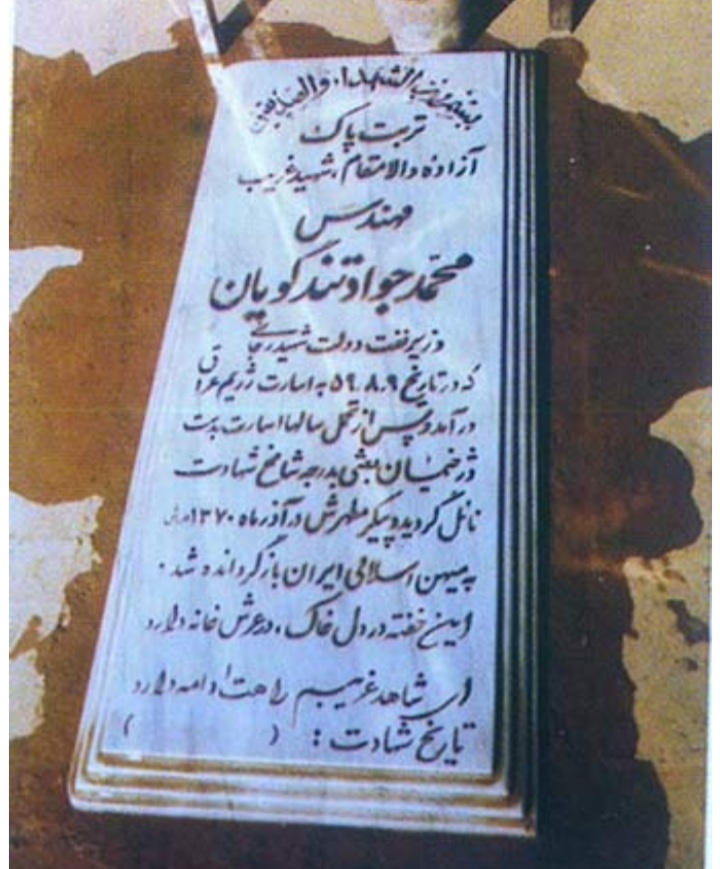 بسم رب الشهداء والصدیقین
تربت پاک
آزاده والامقام، شهید غریب
مهندس
محمد جواد تندگویان
وزیر نفت دولت شهید رجائی
که در تاریخ ۵۹٫۸٫۹ به اسارت رژیم عراق
درآمد و پس از تحمل سالها اسارت بدست
دژخیمان بعثی بدرجه شامخ شهادت
نائل گردید و پیکر مطهرش در آذر ماه ۱۳۷۰
به میهن اسلامی ایران بازگردانده شد.
این خفته در دل خاک، در عرش خانه دارد
ای شاهد غریبم راهت ادامه دارد
تاریخ شهادت : ( )